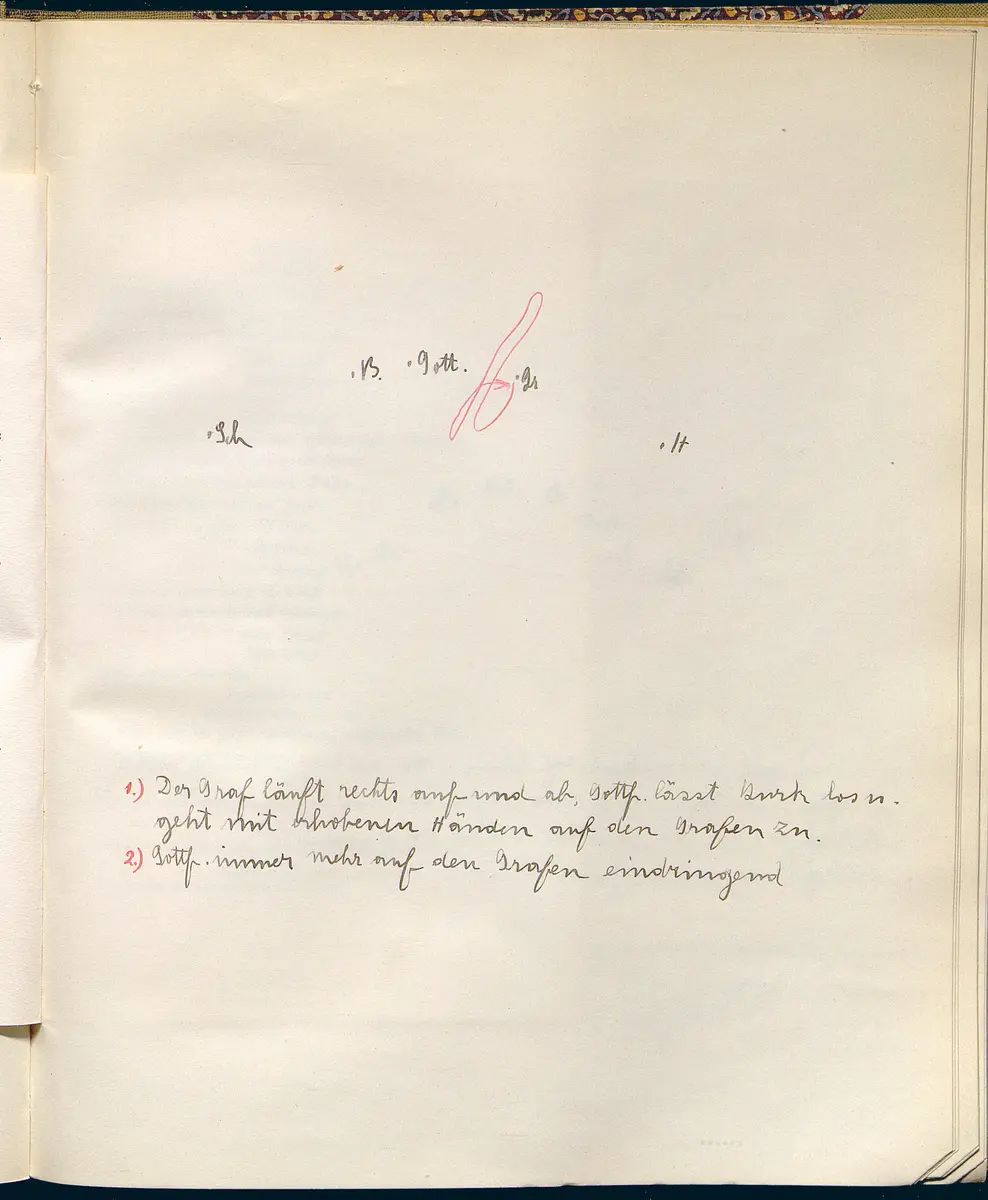 .B. .Gott. .Gr
.Sch .H
1.) Der Graf läuft rechts auf und ab, Gottf. lässt Burk los u.
geht mit erhobenen Händen auf den Grafen zu.
2.) Gottf. immer mehr auf den Grafen eindringend